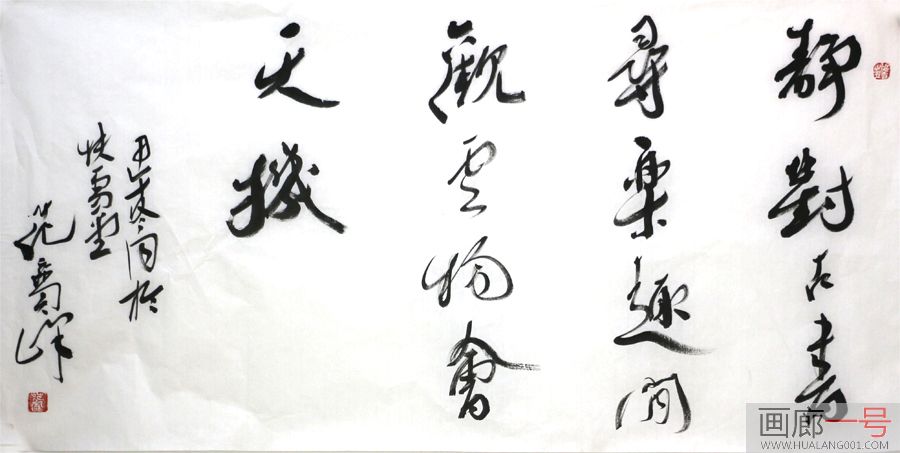 靜對古書
尋樂趣閒
觀雲物會
天機
甲午冬月於
快雪堂
范
画廊一号
WWW.HUALANG001.COM